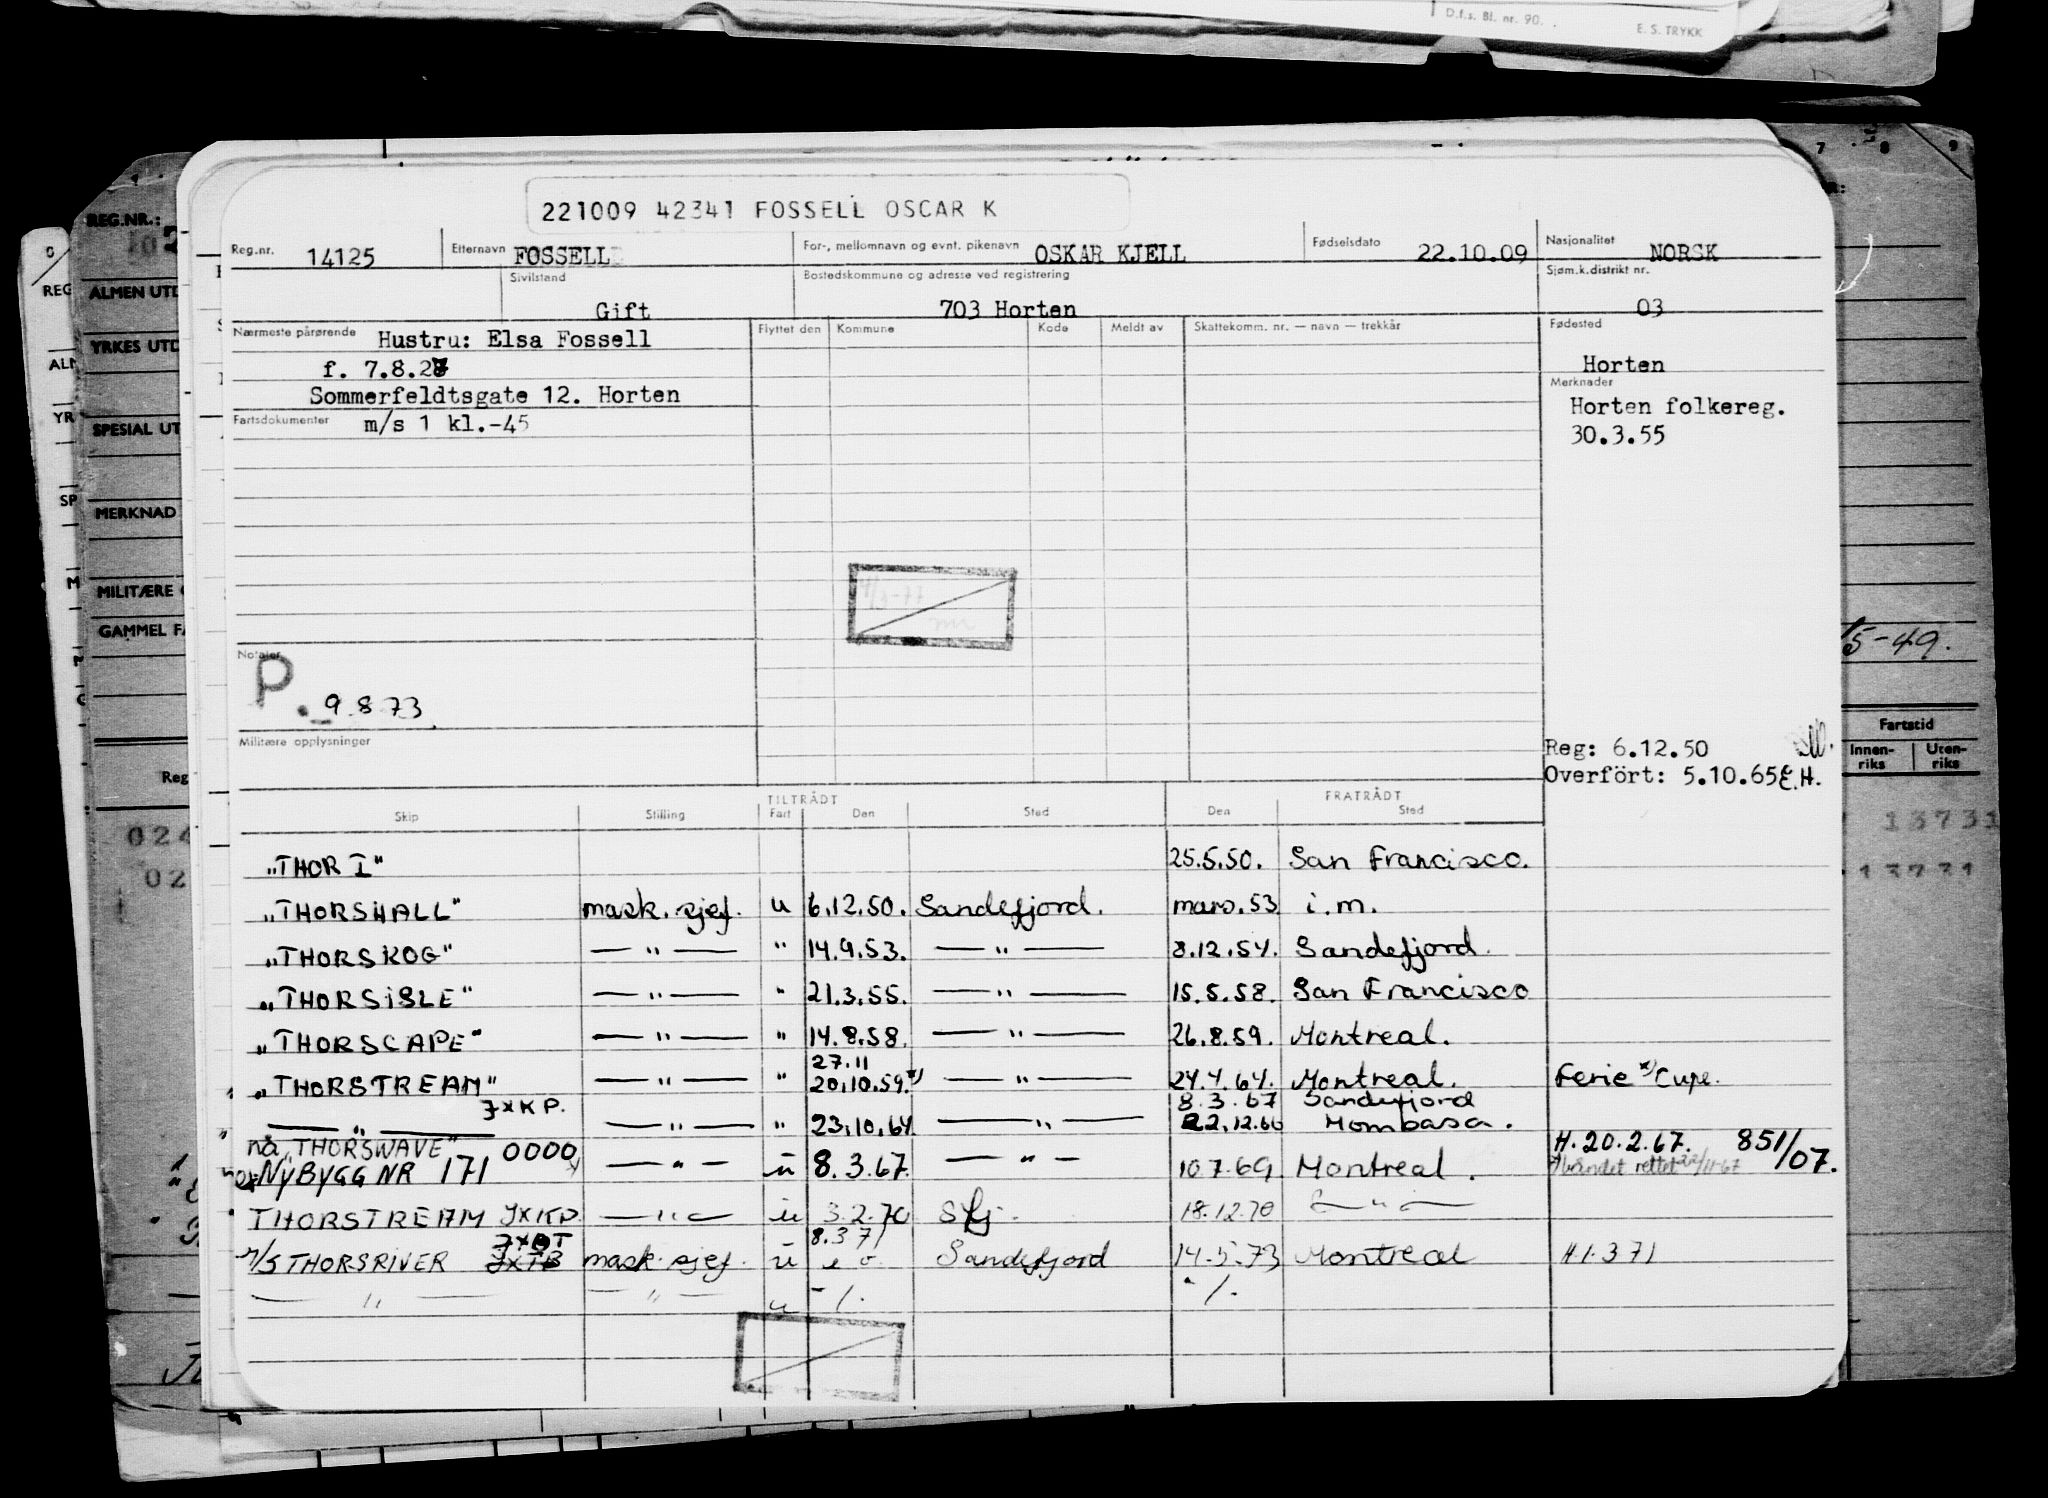 D.f.s. Bl. nr. 90.
E. S. TRYKK
7 8 9
REG.NR.:
REG
ALMEN UTD
ALM
YRKES UTD
YR
SPESIAL UT
SP
MERKNAD
MILITÆRE
GAMMEL FA
5-49.
Fartstid
Innen-
riks
Uten-
riks
Reg
024
02
13731
13731
221009 42341 FOSSELL OSCAR K
Reg.nr. 14125 Etternavn FOSSELL For-, mellomnavn og evnt. pikenavn OSKAR KJELL Fødselsdato 22.10.09 Nasjonalitet NORSK
Sivilstand Gift Bostedskommune og adresse ved registrering 703 Horten Sjøm.k.distrikt nr. 03
Nærmeste pårørende Hustru: Elsa Fossell Flyttet den Kommune Kode Meldt av Skattekomm. nr. — navn — trekkår Fødested
f. 7.8.28 Horten
Sommerfeldtsgate 12. Horten Merknader
Fartsdokumenter m/s 1 kl.-45 Horten folkereg.
30.3.55
Notater
P. 9.8.73.
Militære opplysninger
Reg: 6.12.50
Overført: 5.10.65 E.H.
TILTRÅDT FRATRÅDT
Skip Stilling Fart Den Sted Den Sted
"THOR I" 25.5.50. San Francisco.
"THORSHALL" mask.sjef. u 6.12.50. Sandefjord. mars.53. i.m.
"THORSKOG" — " — " 14.9.53. — " — 8.12.54. Sandefjord.
"THORSISLE" — " — " 21.3.55. — " — 15.5.58. San Francisco
"THORSCAPE" — " — " 14.8.58. — " — 26.8.59. Montreal.
27.11
"THORSTREAM" — " — " 20.10.59.*) — " — 24.4.64. Montreal. Ferie *) Cupe.
JXKP. 8.3.67 Sandefjord
— " — — " — " 23.10.64. — " — 22.12.66 Mombasa.
nå "THORSWAVE" 0000 H. 20.2.67. 851/07.
ex NYBYGG NR 171 — " — u 8.3.67. — " — 10.7.69. Montreal. rettet
THORSTREAM JXKP. — " — u 3.2.70 Sfj. 18.12.70 — " —
JXOT 8.3.71
M/S THORSRIVER JXTB mask.sjef. u Sandefjord 14.5.73 Montreal H.1.3 71
— " — — " — u - /. - /.